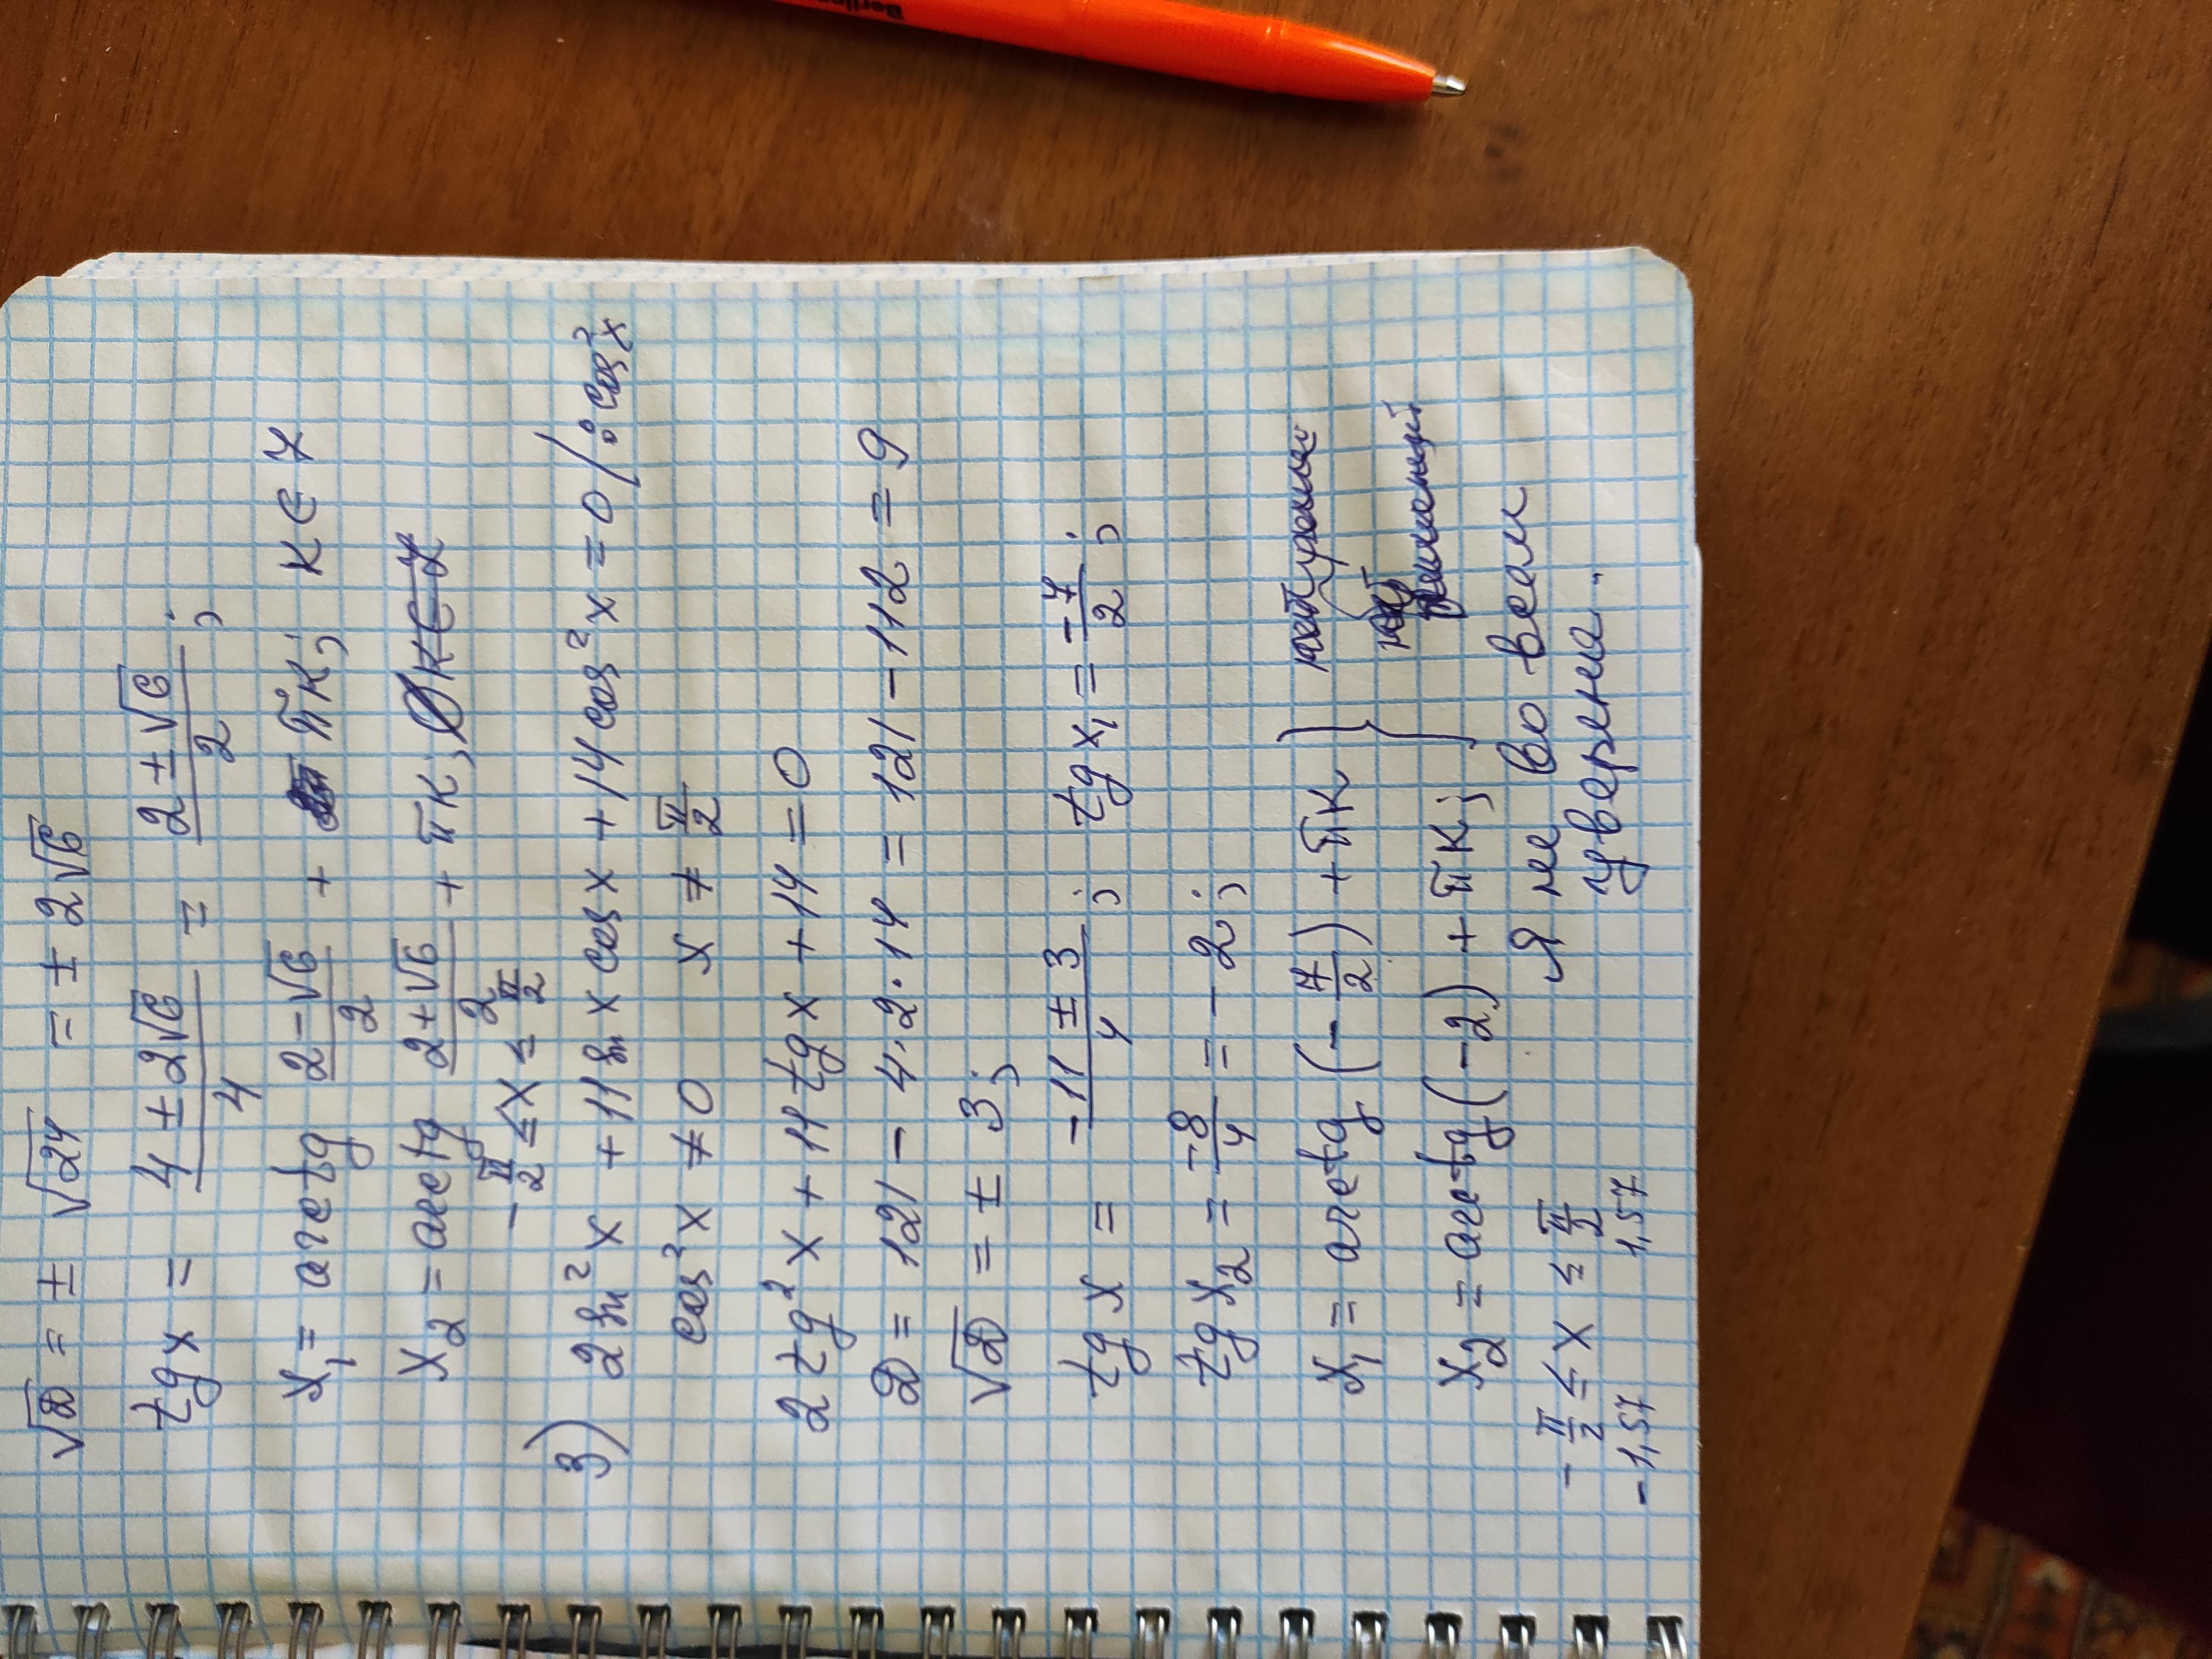 √D = ± √24 = ± 2√6
tg x = (4 ± 2√6)/4 = (2 ± √6)/2 ;
x₁ = arctg (2 - √6)/2 + πк; к ∈ Z
x₂ = arctg (2 + √6)/2 + πк, к ∈ Z
- π/2 ≤ x ≤ π/2
3) 2 sin²x + 11 sin x cos x + 14 cos²x = 0 / : cos²x
cos²x ≠ 0 x ≠ π/2
2 tg²x + 11 tg x + 14 = 0
D = 121 - 4·2·14 = 121 - 112 = 9
√D = ± 3;
tg x = (-11 ± 3)/4 ; tg x₁ = -7/2 ;
tg x₂ = -8/4 = - 2 ;
x₁ = arctg (- 7/2) + πк
x₂ = arctg (-2) + πк;
нет
решений
Я не во всем
уверена.
- π/2 ≤ x ≤ π/2
- 1,57 1,57
Berlingo